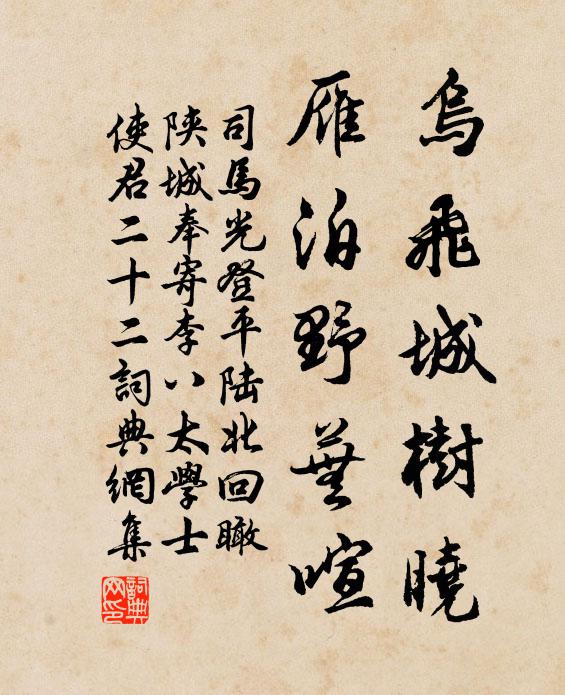 烏飛城樹曉
雁泊野蕪喧
司馬光登平陸北回瞰
陝城奉寄李八太學士
使君二十二詞典網集
詞典網印